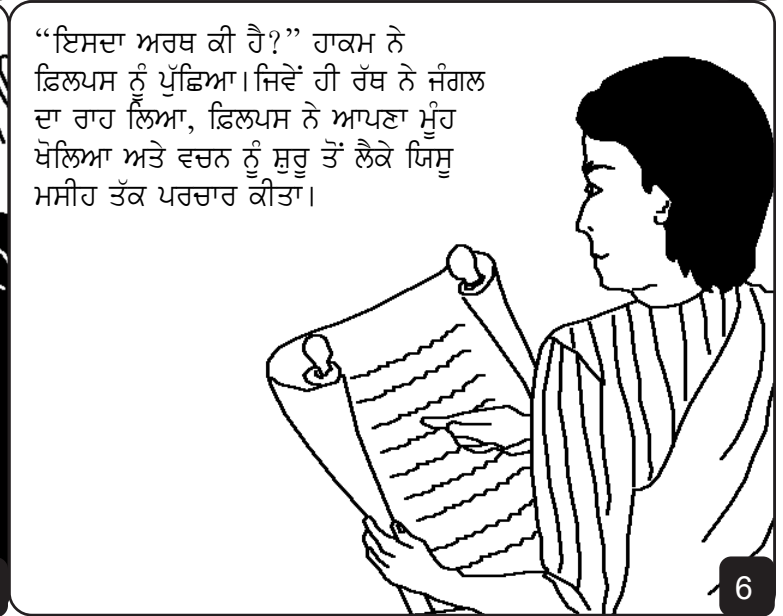 “ਇਸਦਾ ਅਰਥ ਕੀ ਹੈ?” ਹਾਕਮ ਨੇ
ਫ਼ਿਲਪਸ ਨੂੰ ਪੁੱਛਿਆ।ਜਿਵੇਂ ਹੀ ਰੱਥ ਨੇ ਜੰਗਲ
ਦਾ ਰਾਹ ਲਿਆ, ਫ਼ਿਲਪਸ ਨੇ ਆਪਣਾ ਮੂੰਹ
ਖੋਲਿਆ ਅਤੇ ਵਚਨ ਨੂੰ ਸ਼ੁਰੂ ਤੋਂ ਲੈਕੇ ਯਿਸੂ
ਮਸੀਹ ਤੱਕ ਪਰਚਾਰ ਕੀਤਾ।
6